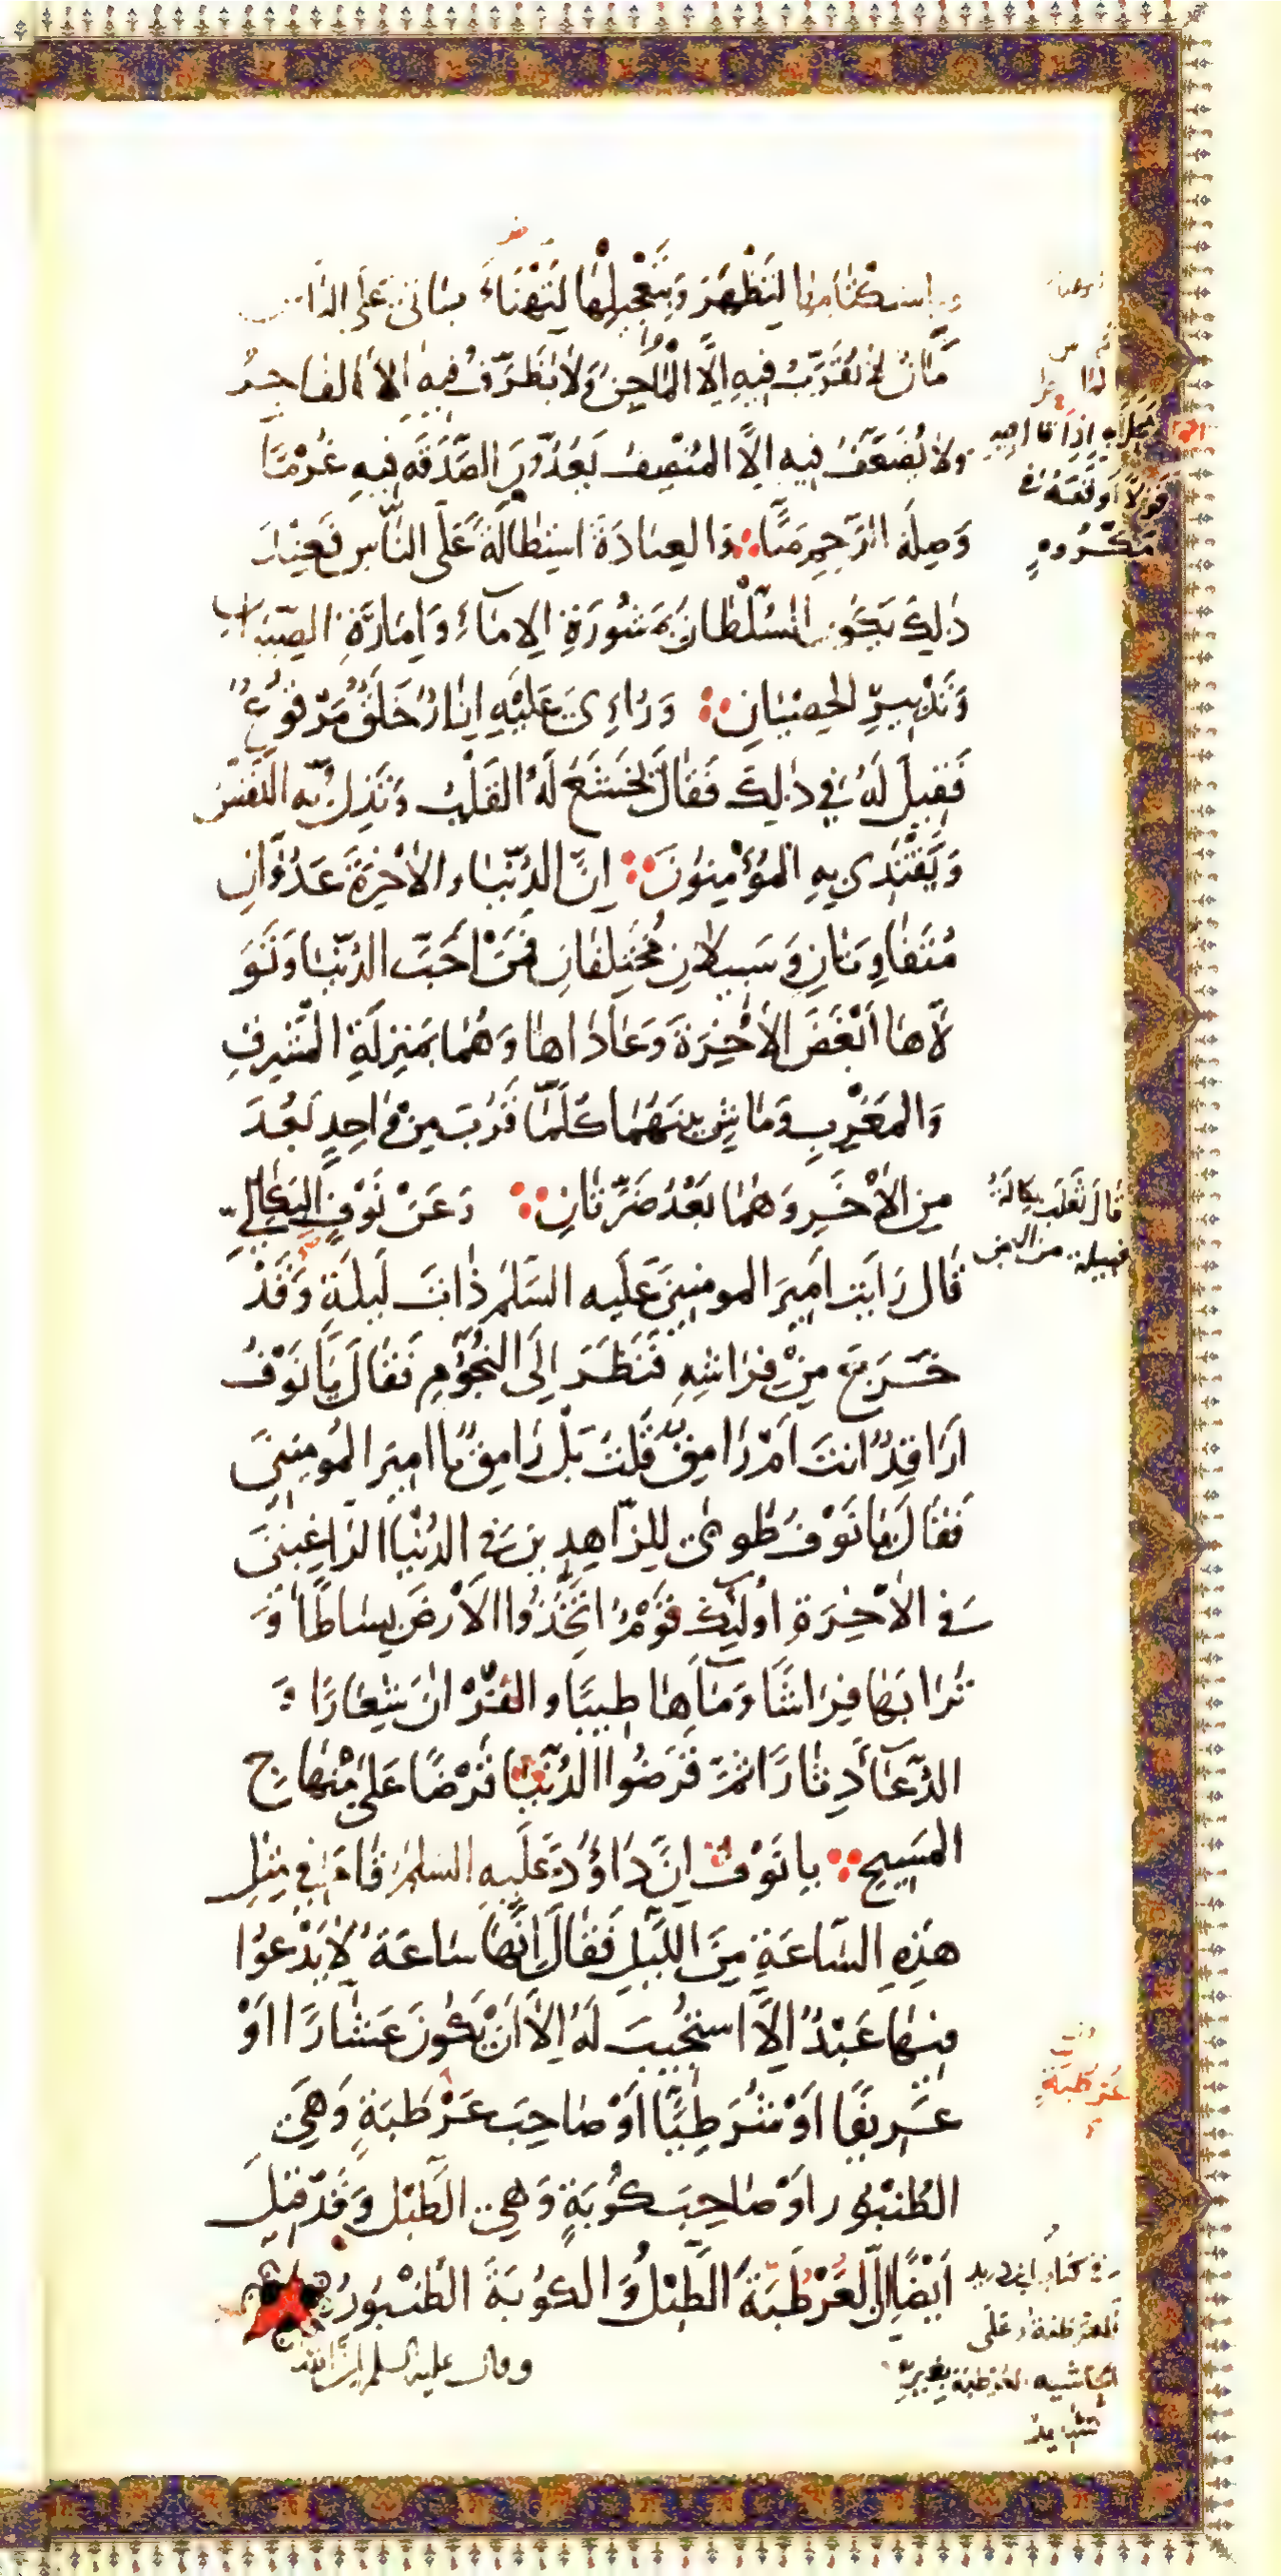 وباستكتامها لتظهر وبتعجيلها لتهنأ يأتي على الناس
زمان لا يُقَرَّبُ فيه إلّا الماحِلُ ولا يُظَرَّفُ فيه إلّا الفاجرُ
ولا يُضَعَّفُ فيه إلّا المُنْصِفُ يَعُدُّونَ الصَّدَقَةَ فيهِ غُرْمًا
وَصِلَةَ الرَّحِمِ مَنًّا والعِبَادَةَ اسْتِطَالَةً عَلَى النَّاسِ فَعِنْدَ
ذٰلِكَ يَكُونُ السُّلْطَانُ بِمَشُورَةِ الإمَاءِ وَإمَارَةِ الصِّبْيَانِ
وَتَدْبِيرِ الخِصْيَانِ وَرُاءِيَ عَلَيْهِ إزَارٌ خَلَقٌ مَرْقُوعٌ
فَقِيلَ لَهُ فِي ذٰلِكَ فَقَالَ يَخْشَعُ لَهُ القَلْبُ وَتَذِلُّ بِهِ النَّفْسُ
وَيَقْتَدِي بِهِ المُؤْمِنُونَ إنَّ الدُّنْيَا والآخِرَةَ عَدُوَّانِ
مُتَفَاوِتَانِ وَسَبِيلَانِ مُخْتَلِفَانِ فَمَنْ أَحَبَّ الدُّنْيَا وَتَوَ
لَّاهَا أَبْغَضَ الآخِرَةَ وَعَادَاهَا وَهُمَا بِمَنْزِلَةِ المَشْرِقِ
وَالمَغْرِبِ وَمَاشٍ بَيْنَهُمَا كُلَّمَا قَرُبَ مِنْ وَاحِدٍ بَعُدَ
مِنَ الآخَرِ وَهُمَا بَعْدُ ضَرَّتَانِ وَعَنْ نَوْفٍ البَكَالِيِّ
قَالَ رَأَيْتُ أَمِيرَ المومنينَ عَلَيهِ السَّلمُ ذَاتَ لَيلَةٍ وَقَدْ
خَرَجَ مِنْ فِرَاشِهِ فَنَظَرَ إِلَى النُّجُومِ فَقَالَ يَا نَوْفُ
أرَاقِدٌ أنتَ أمْ رَامِقٌ قُلتُ بَلْ رَامِقٌ يا امِيرَ المُومِنِينَ
فَقَالَ يَا نَوْفُ طُوبَى لِلزَّاهِدِينَ فِي الدُّنْيَا الرَّاغِبِينَ
فِي الآخِرَةِ أُولٰئِكَ قَوْمٌ اتَّخَذُوا الأرْضَ بِسَاطًا وَ
تُرَابَهَا فِرَاشًا وَمَاءَهَا طِيبًا والقُرْآنَ شِعَارًا وَ
الدُّعَاءَ دِثَارًا ثُمَّ قَرَضُوا الدُّنْيَا قَرْضًا عَلَى مِنْهَاجِ
المَسِيحِ يا نَوْفُ إِنَّ دَاوُدَ عَلَيهِ السلمُ قَامَ فِي مِثْلِ
هٰذِهِ السَّاعَةِ مِنَ اللَّيْلِ فَقَالَ إِنَّهَا سَاعَةٌ لَا يَدْعُوا
فِيهَا عَبْدٌ إلَّا اسْتُجِيبَ لَهُ إِلَّا أَنْ يَكُونَ عَشَّارًا أَوْ
عَرِيفًا أَوْ شُرَطِيًّا أَوْ صَاحِبَ عَرْطَبَةٍ وَهِيَ
الطُّنْبُور أَوْ صَاحِبَ كُوبَةٍ وَهِيَ الطَّبْلُ وَقَدْ قِيلَ
أَيْضًا إنَّ العَرْطَبَةَ الطَّبْلُ وَالكُوبَةَ الطُّنْبُورُ
وقال عليه السلم إن الله
إذا قال فيه
قَوْلًا أوقعه في
مَكْرُوهٍ
قَالَ ثَعلَب بِكَالَة
قبيلة من اليمن
عَرْطَبَةٍ
في كتاب ابن دريد
العرطبة وعلى
الحاشيه العرطبة بغير
تشديد